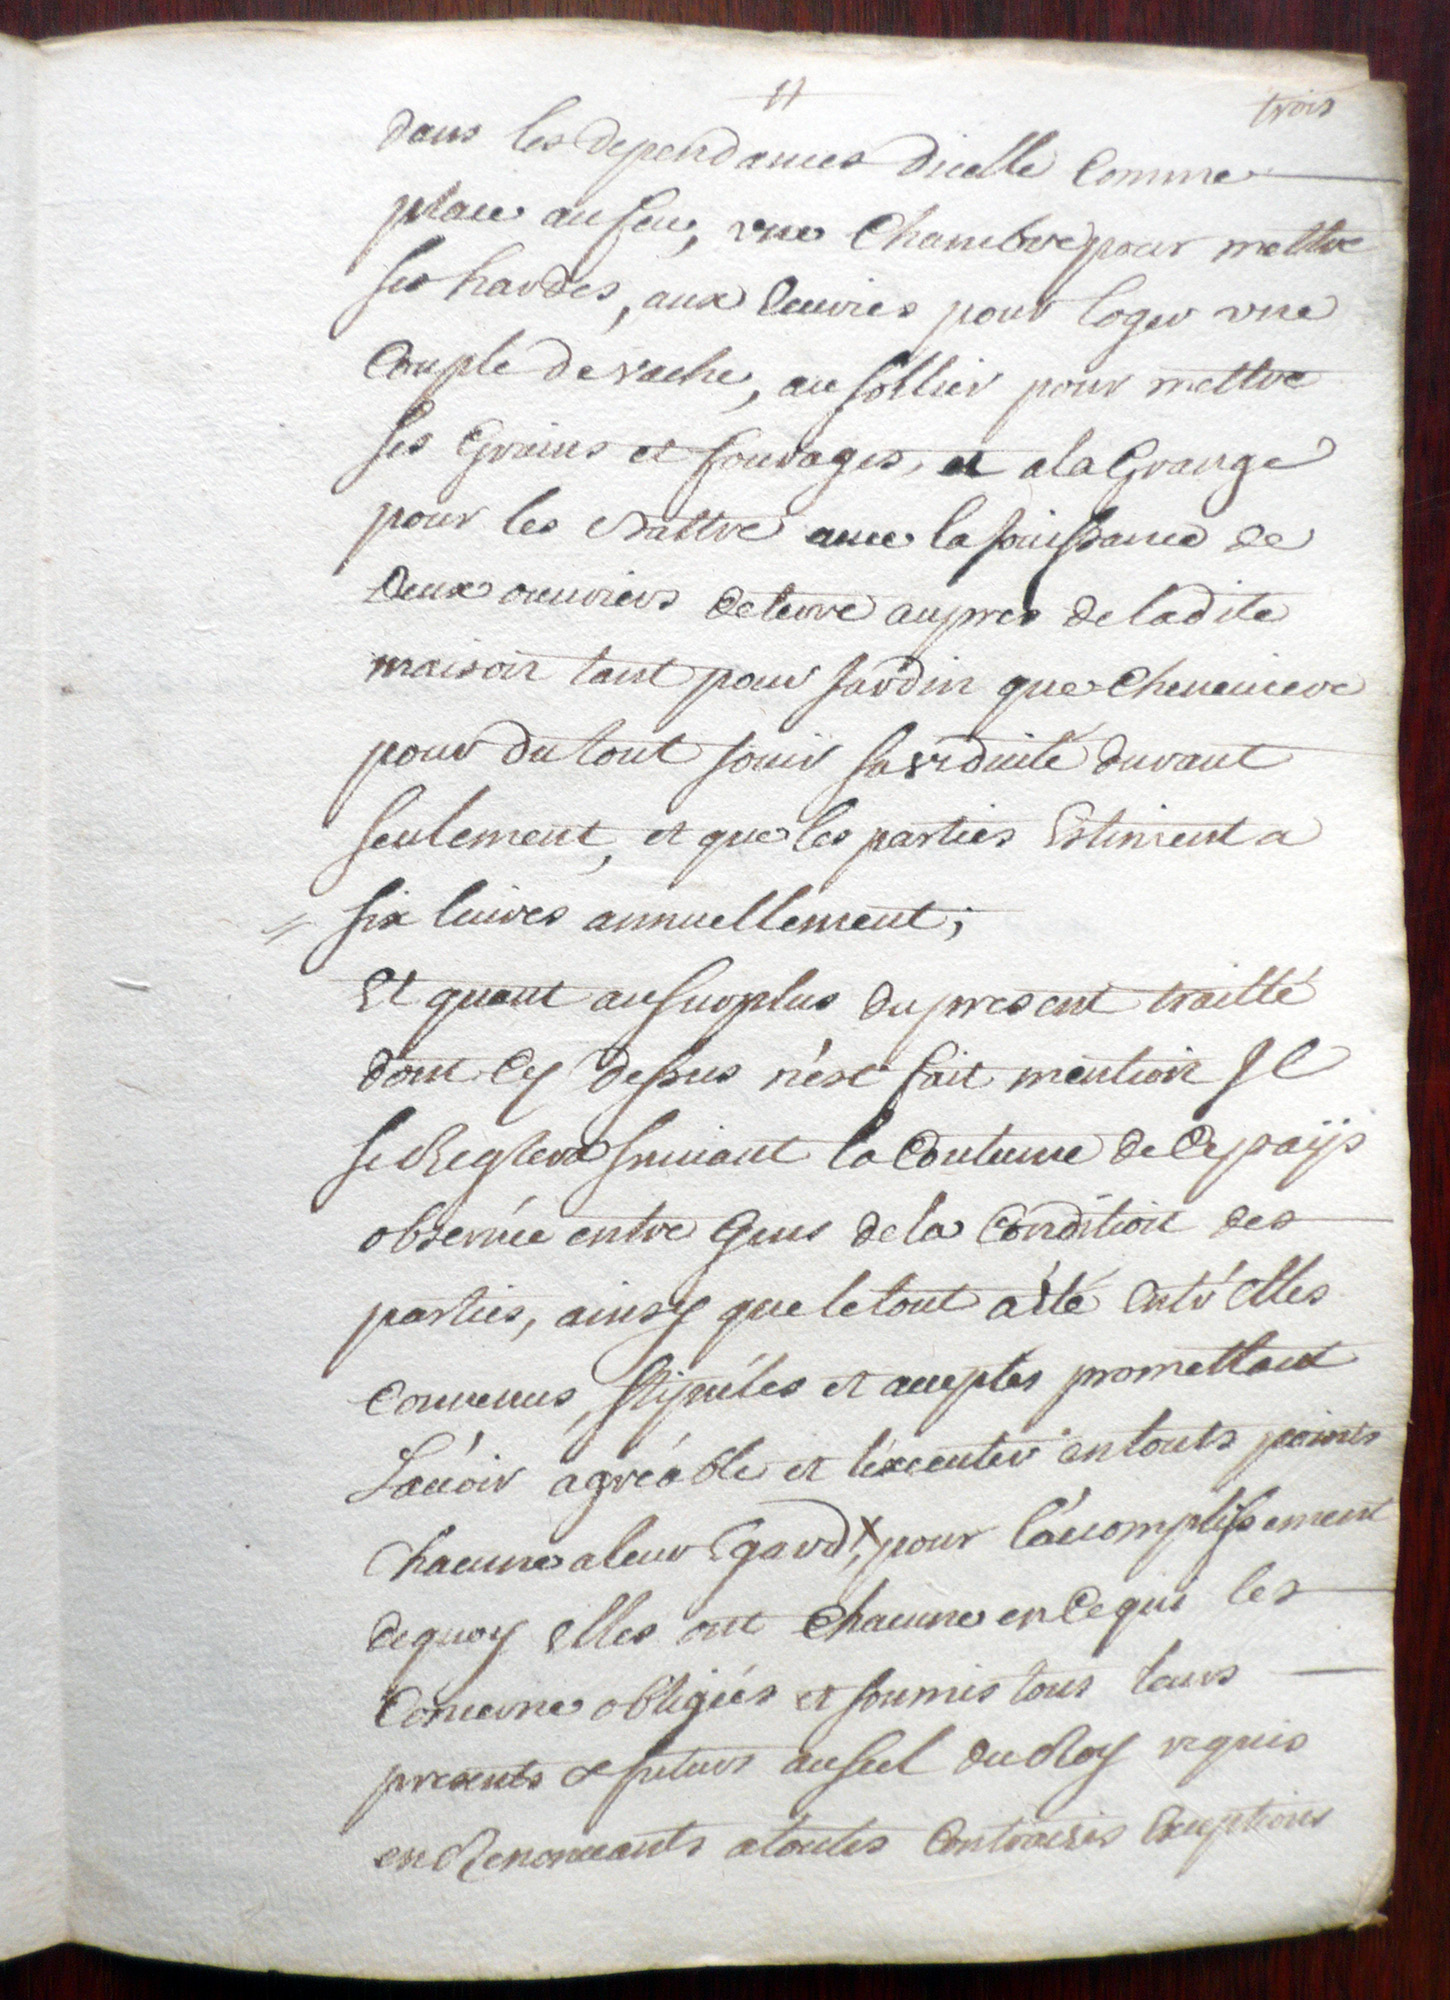 11
trois
dans les dependances dicelle Comme
place au feu, vne Chambre pour mettre
ses hardes, aux Ecuries pour loger vne
Couple de vache, au sollier pour mettre
ses Grains et fourages, et a la Grange
pour les Battre avec la Jouissance de
deux ouuriers de terre aupres de ladite
maison tant pour Jardin que Cheneuiere
pour du tout Jouir sa viduité durant
seulement, et que les parties Estiment a
six liures annuellement;
Et quant au surplus du present traitté
dont Cy dessus n'est fait mention Il
se Reglera suiuant la Coutume de Ce païs
obseruée entre Gens de la Condition des
parties, ainsy que le tout a été Entr'elles
Conuenus, stipulés et acceptés promettant
L'auoir agréable et l'éxecuter en touts points
Chacune a leur Egard, x pour l'acomplissement
de quoy Elles ont Chacune en Ce qui les
Concerne obligées et soumis tous leurs
presents & futurs au scel du Roy requis
en Renoncants a toutes Contraires Exceptions